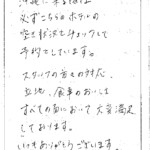 沖縄に来る時は
必ずこちらのホテルの
空き状況をチェックして
予約しています。
スタッフの方々の対応、
立地、食事のおいて
すべての面において大変満足
しております。
いつもありがとうございます。